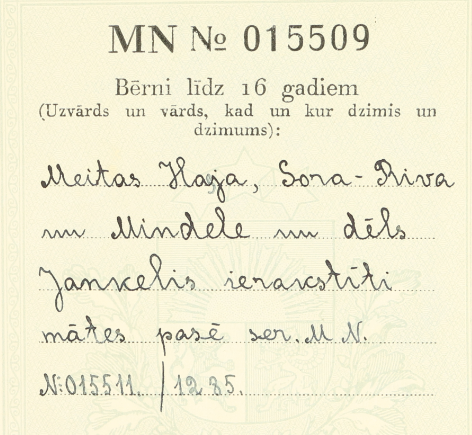 MN № 015509
Bērni līdz 16 gadiem
(Uzvārds un vārds, kad un kur dzimis un
dzimums):
Meitas Haja, Sora-Riva
un Mindele un dēls
Jankelis ierakstīti
mātes pasē ser. M N.
№ 015511. / 1285.